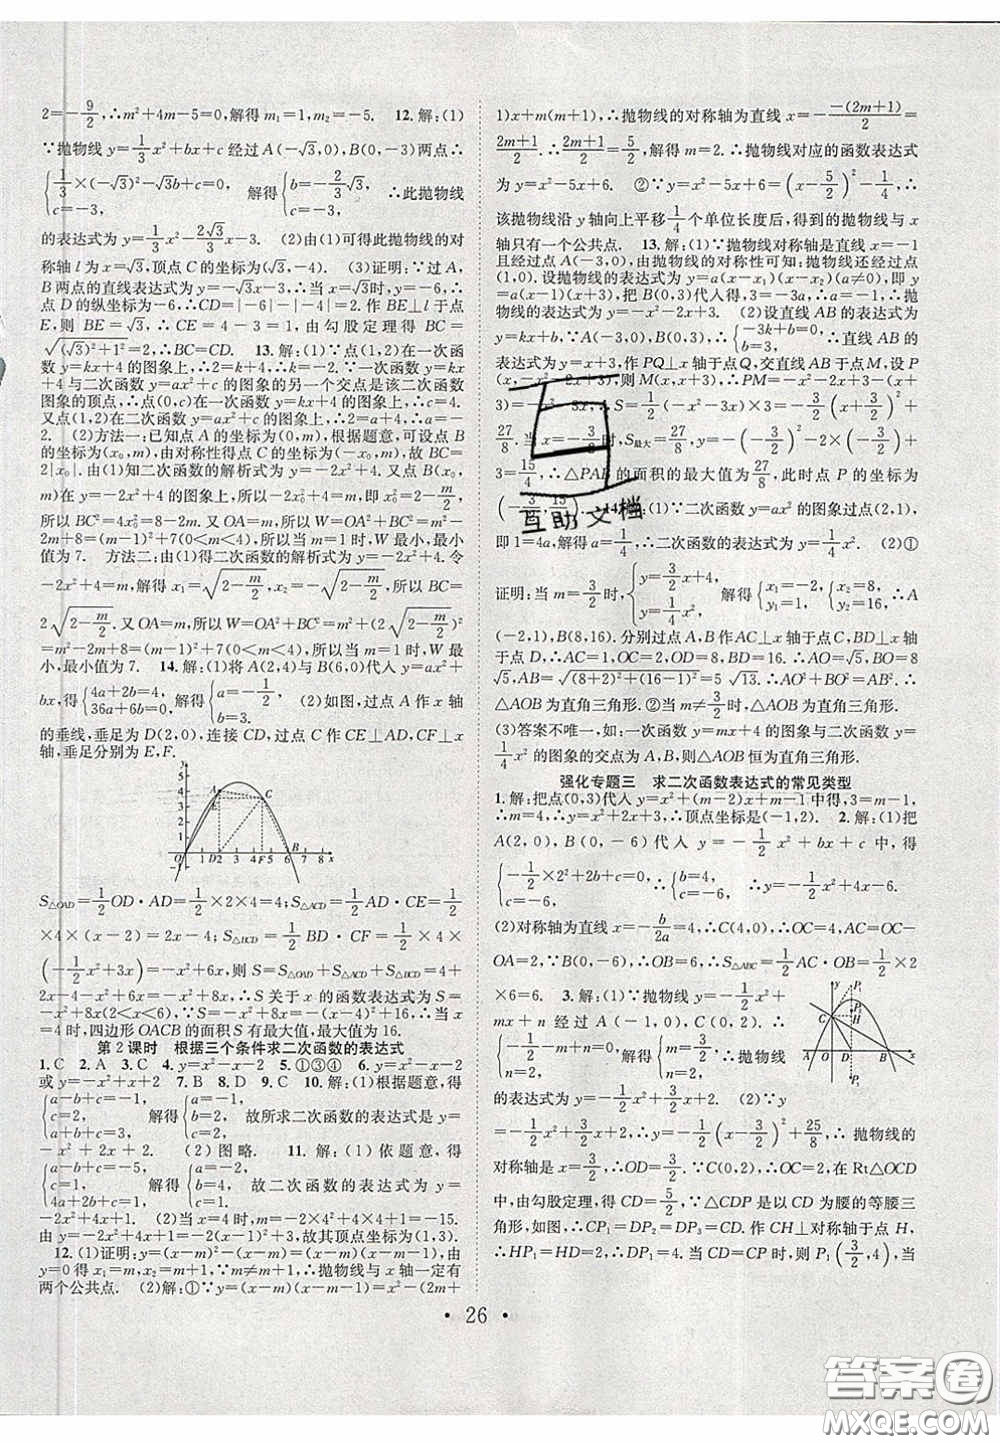 2=-9/2,∴m²+4m-5=0,解得 m₁=1,m₂=-5. 12.解:(1)
∵抛物线 y=1/3x²+bx+c 经过 A(-√3,0),B(0,-3)两点∴
{1/3×(-√3)²-√3b+c=0, c=-3, 解得{b=-2/3√3, c=-3, ∴此抛物线
的表达式为 y=1/3x²-2√3/3x-3. (2)由(1)可得此抛物线的对
称轴 l 为 x=√3,顶点 C 的坐标为(√3,-4). (3)证明:∵过 A,
B 两点的直线表达式为 y=-√3x-3,∴当 x=√3时,y=-6,∴
点 D 的纵坐标为-6,∴CD=|-6|-|-4|=2. 作 BE⊥l 于点
E,则 BE=√3,∴CE=4-3=1,由勾股定理得 BC=
√((√3)²+1²)=2,∴BC=CD. 13.解:(1)∵点(1,2)在一次函
数 y=kx+4 的图象上,∴2=k+4,∴k=-2. ∵一次函数 y=kx
+4 与二次函数 y=ax²+c 的图象的另一个交点是该二次函数
图象的顶点,∴点(0,c)在一次函数 y=kx+4 的图象上,∴c=4.
又点(1,2)在二次函数 y=ax²+c 的图象上,∴2=a+4,∴a=-
2. (2)方法一:已知点 A 的坐标为(0,m),根据题意,可设点 B
的坐标为(x₀,m),由对称性得点 C 的坐标为(-x₀,m),故 BC=
2|x₀|. 由(1)知二次函数的解析式为 y=-2x²+4,又点 B(x₀,
m)在 y=-2x²+4 的图象上,所以-2x₀²+4=m,即 x₀²=2-m/2,
所以 BC²=4x₀²=8-2m. 又 OA=m,所以 W=OA²+BC²=m²-
2m+8=(m-1)²+7(0<m<4),所以当 m=1 时,W 最小,最小
值为 7. 方法二:由(1)得二次函数的解析式为 y=-2x²+4. 令
-2x²+4=m,解得 x₁=√(2-m/2),x₂=-√(2-m/2),所以 BC=
2√(2-m/2). 又 OA=m,所以 W=OA²+BC²=m²+4(2-m/2)=
m²-2m+8=(m-1)²+7(0<m<4),所以当 m=1 时,W 最
小,最小值为 7. 14.解:(1)将 A(2,4)与 B(6,0)代入 y=ax²+
bx,得{4a+2b=4, 36a+6b=0, 解得{a=-1/2, b=3. (2)如图,过点 A 作 x 轴
的垂线,垂足为 D(2,0),连接 CD,过点 C 作 CE⊥AD,CF⊥x
轴,垂足分别为 E,F.
y
5
4 A C
3 E
2
1
O 1 D2 3 4 F5 6 7 8 x
B
-1
S△OAD=1/2OD·AD=1/2×2×4=4;S△ACD=1/2AD·CE=1/2
×4×(x-2)=2x-4;S△BCD=1/2BD·CF=1/2×4×
(-1/2x²+3x)=-x²+6x,则 S=S△OAD+S△ACD+S△BCD=4+
2x-4-x²+6x=-x²+8x,∴S 关于 x 的函数表达式为 S=
-x²+8x(2<x<6). ∵S=-x²+8x=-(x-4)²+16,∴当 x
=4 时,四边形 OACB 的面积 S 有最大值,最大值为 16.
第 2 课时 根据三个条件求二次函数的表达式
1.C 2.A 3.C 4.y=x²-x-2 5.①③④ 6.y=x²-x-2
或 y=-x²+x+2 7.B 8.D 9.C 10.解:(1)根据题意,得
{a-b+c=-1, c=2, a+b+c=3, 解得{a=-1, b=2, c=2, 故所求二次函数的表达式是 y=
-x²+2x+2. (2)图略. 11.解:(1)依题意,得
{a-b+c=-5, c=1, 4a+2b+c=1, 解得{a=-2, b=4, c=1, 故二次函数的表达式为 y=
-2x²+4x+1. (2)当 x=4 时,m=-2×4²+4×4+1=-15.
由 y=-2x²+4x+1=-2(x-1)²+3,故其顶点坐标为(1,3).
12.(1)证明:∵y=(x-m)²-(x-m)=(x-m)(x-m-1),∴由
y=0 得 x₁=m,x₂=m+1,∵m≠m+1,∴抛物线与 x 轴一定有
两个公共点. (2)解:①∵y=(x-m)(x-m-1)=x²-(2m+
1)x+m(m+1),∴抛物线的对称轴为直线 x=-(-(2m+1))/2
=(2m+1)/2=5/2,解得 m=2. ∴抛物线对应的函数表达式
为 y=x²-5x+6. ②∵y=x²-5x+6=(x-5/2)²-1/4,∴
该抛物线沿 y 轴向上平移1/4个单位长度后,得到的抛物线与 x
轴只有一个公共点. 13.解:(1)∵抛物线对称轴是直线 x=-1
且经过点 A(-3,0),由抛物线的对称性可知:抛物线还经过点
(1,0). 设抛物线的表达式为 y=a(x-x₁)(x-x₂)(a≠0),即 y
=a(x-1)(x+3),把 B(0,3)代入得,3=-3a,∴a=-1,∴抛
物线的表达式为 y=-x²-2x+3. (2)设直线 AB 的表达式为 y
=kx+b,∵A(-3,0),B(0,3),∴{-3k+b=0, b=3, ∴直线 AB 的
表达式为 y=x+3,作 PQ⊥x 轴于点 Q,交直线 AB 于点 M,设
P(x,-x²-2x+3),则 M(x,x+3),∴PM=-x²-2x+3-(x+
3)=-x²-3x,∴S=1/2(-x²-3x)×3=-3/2(x+3/2)²+
27/8. 当 x=-3/2时,S最大=27/8,y=-(-3/2)²-2×(-3/2)+
3=15/4,∴△PAB 的面积的最大值为27/8,此时点 P 的坐标为
(-3/2,15/4). 14.解:(1)∵二次函数 y=ax² 的图象过点(2,1),
即 1=4a,解得 a=1/4,∴二次函数的表达式为 y=1/4x². (2)①
证明:当 m=3/2时,{y=3/2x+4, y=1/4x², 解得{x₁=-2, y₁=1, {x₂=8, y₂=16, ∴A
(-2,1),B(8,16). 分别过点 A,B 作AC⊥x 轴于点 C,BD⊥x 轴
于点 D,∴AC=1,OC=2,OD=8,BD=16. ∴AO=√5,BO=8
√5,AB=√((8+2)²+(16-1)²)=5√13. ∴AO²+BO²=AB²,∴
△AOB 为直角三角形. ②当 m≠3/2时,△AOB 为直角三角形.
(3)答案不唯一,如:一次函数 y=mx+4 的图象与二次函数 y=
1/4x² 的图象的交点为 A,B,则△AOB 恒为直角三角形.
强化专题三 求二次函数表达式的常见类型
1.解:把点(0,3)代入 y=x²+(m-2)x+m-1 中得,3=m-1,
∴m=4,∴y=x²+2x+3,∴顶点坐标是(-1,2). 2.解:(1)把
A(2,0),B(0,-6)代入 y=-1/2x²+bx+c 中,得
{-1/2×2²+2b+c=0, c=-6, ∴{b=4, c=-6, ∴y=-1/2x²+4x-6.
(2)对称轴为直线 x=-b/2a=4,∴C(4,0),∴OC=4,AC=OC-
OA=2,∵B(0,-6),∴OB=6,∴S△ABC=1/2AC·OB=1/2×2
×6=6. 3.解:(1)∵抛物线 y=-1/2x²+
mx+n 经过点 A(-1,0),C(0,2),∴
{-1/2-m+n=0, n=2, 解得{m=3/2, n=2, ∴抛物线
的表达式为 y=-1/2x²+3/2x+2. (2)∵y
=-1/2x²+3/2x+2,∴y=-1/2(x-3/2)²+25/8,∴抛物线的
对称轴是 x=3/2,∴OD=3/2. ∵C(0,2),∴OC=2,在 Rt△OCD
中,由勾股定理,得 CD=5/2,∵△CDP 是以 CD 为腰的等腰三
角形,如图,∴CP₁=DP₂=DP₃=CD. 作 CH⊥对称轴于点 H,
∴HP₁=HD=2,∴DP₁=4. ∴P₁(3/2,4),当
y P₁ P₂ C H A O D B x P₃
· 26 ·
互助文档
答案圈
MXQE.COM